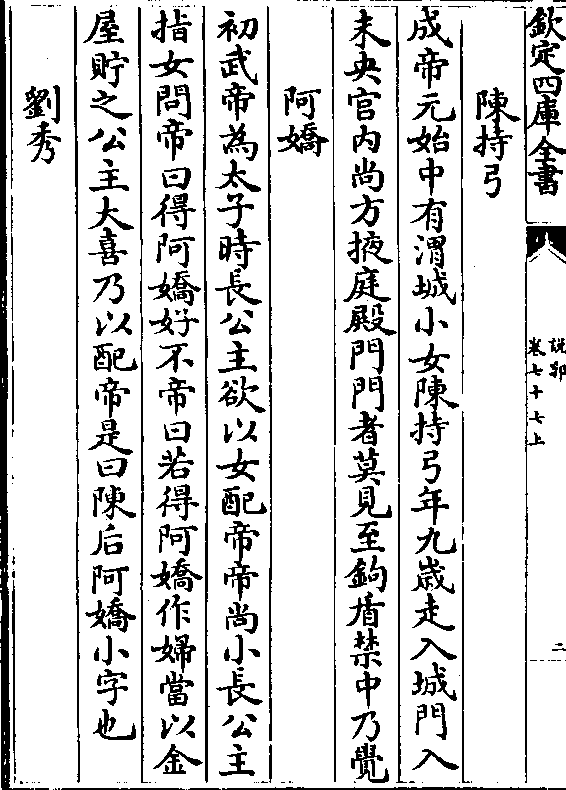 欽定四庫全書
說郛
卷七十七上
二
陳持弓
成帝元始中有渭城小女陳持弓年九歳走入城門入
未央宫内尚方掖庭殿門門者莫見至鉤盾禁中乃覺
阿嬌
初武帝為太子時長公主欲以女配帝帝尚小長公主
指女問帝曰得阿嬌好不帝曰若得阿嬌作婦當以金
屋貯之公主大喜乃以配帝是曰陳后阿嬌小字也
劉秀